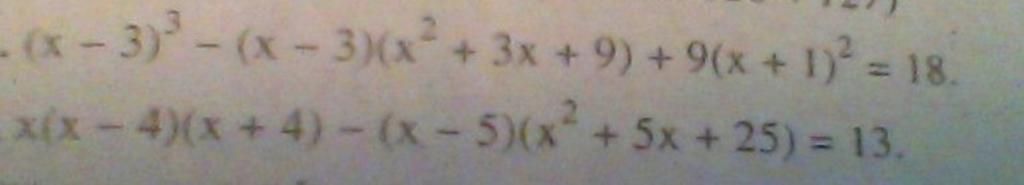 . (x − 3)³ − (x − 3)(x² + 3x + 9) + 9(x + 1)² = 18.
x(x − 4)(x + 4) − (x − 5)(x² + 5x + 25) = 13.